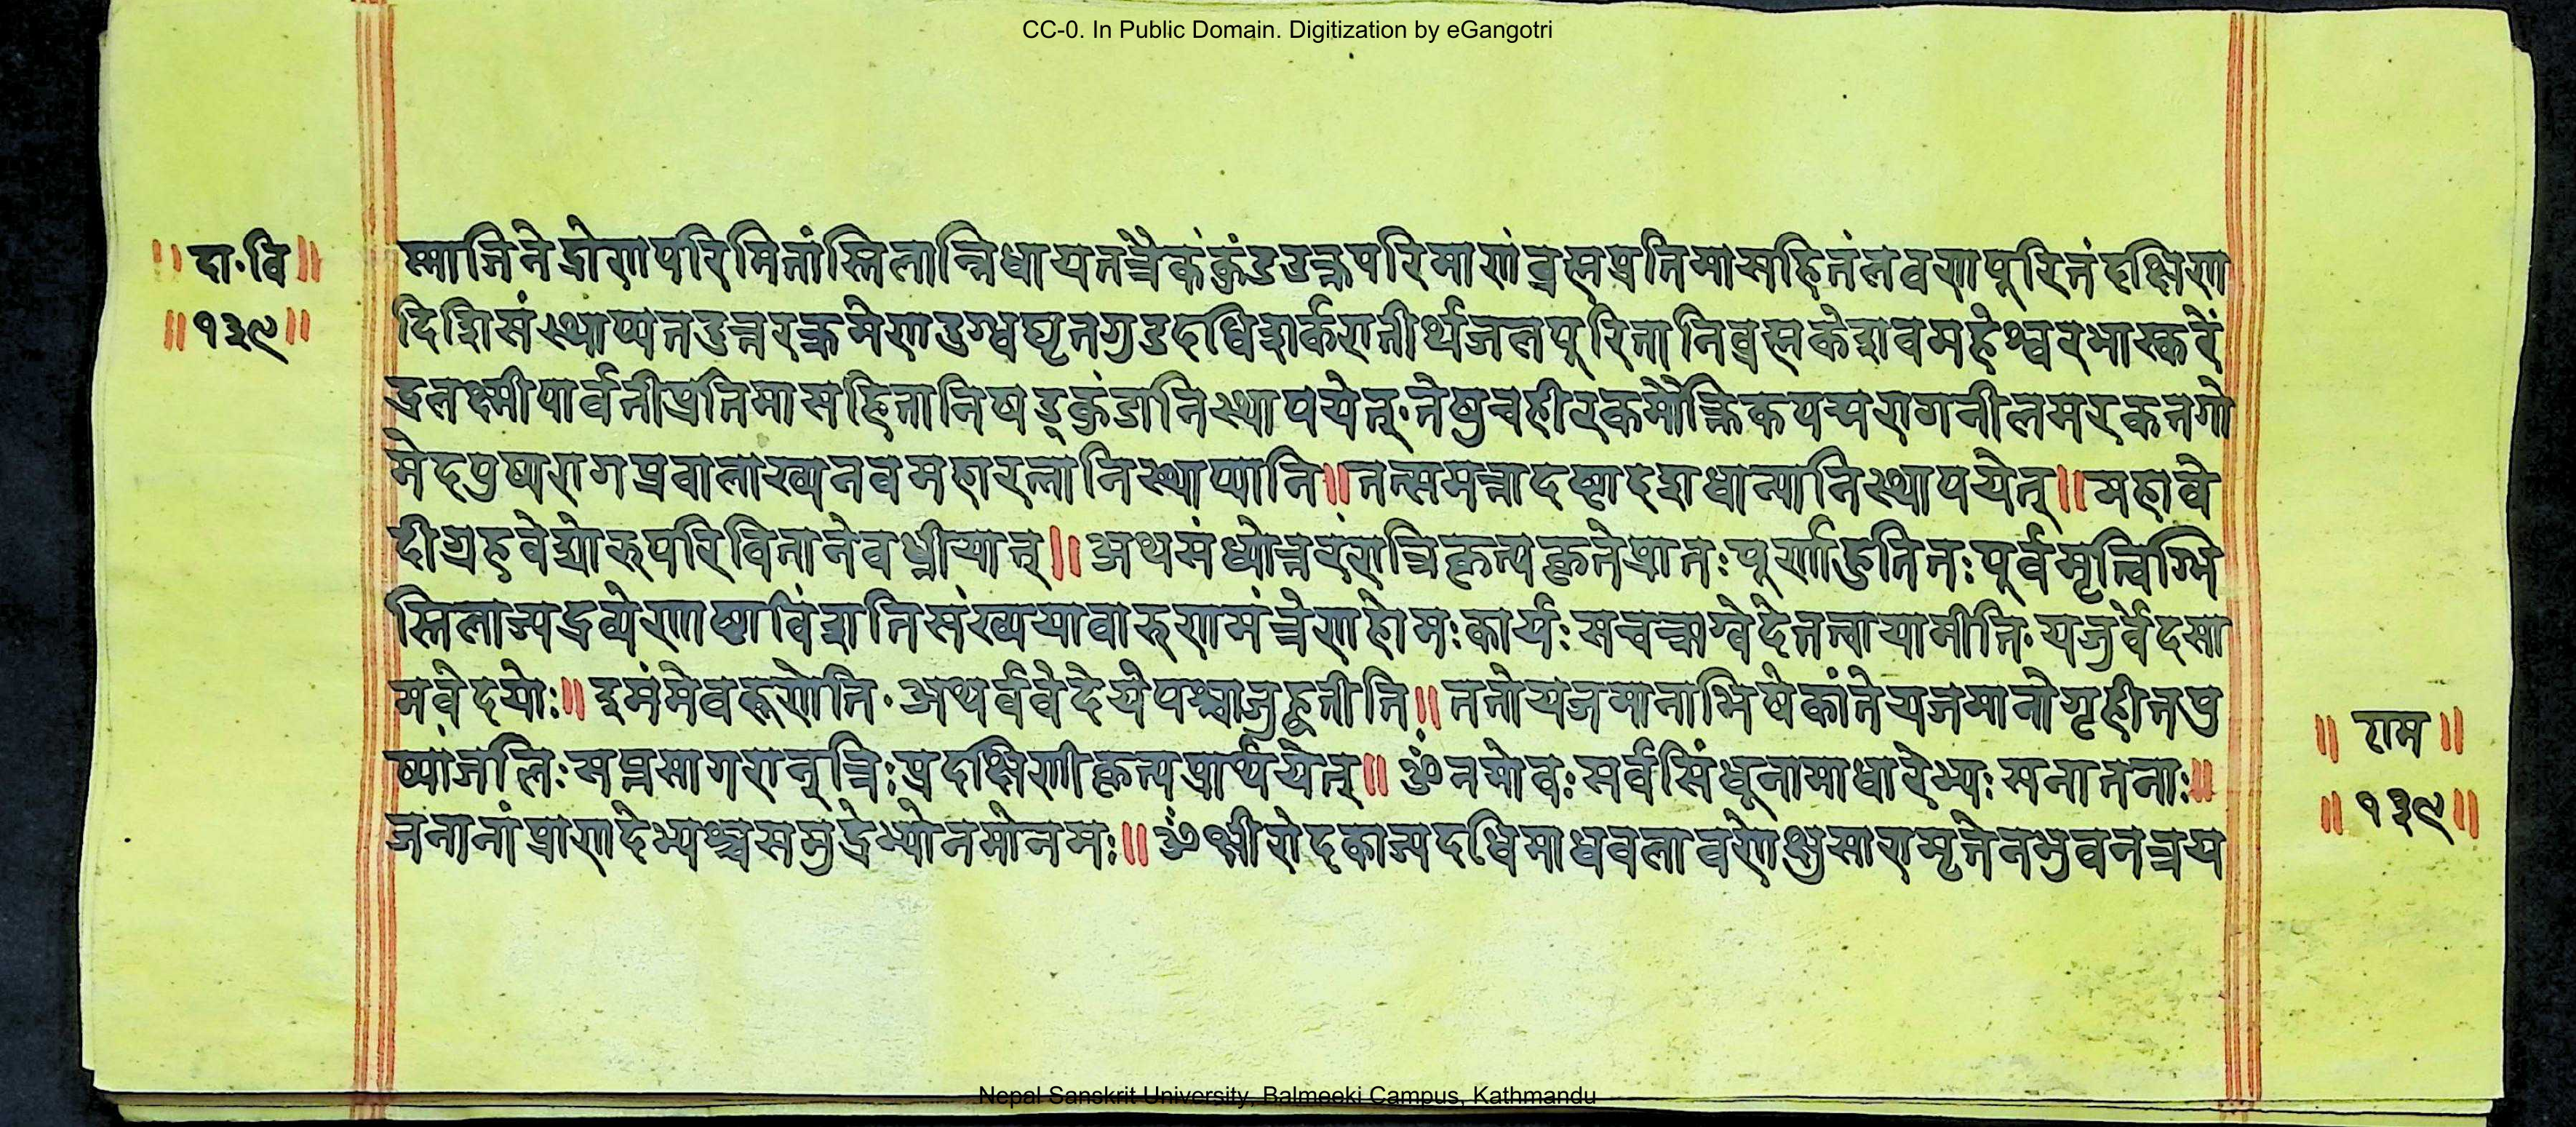 CC-0. In Public Domain. Digitization by eGangotri
॥दा·वि॥
॥१३९॥
ष्माजिने द्रोणपरिमितांस्तिलान्निधाय तत्रैकं कुंडउक्तपरिमाणं ब्रह्मप्रतिमासहितं लवणपूरितं दक्षिण
दिशि संस्थाप्य तदुत्तरक्रमेण दुग्धघृतगुडदधिशर्करातीर्थजलपूरितानि ब्रह्मकेशवमहेश्वरभास्करें
द्रलक्ष्मीपार्वतीप्रतिमासहितानि षड्कुंडानि स्थापयेत्·तेषु च हीरकमौक्तिकपद्मरागनीलमरकतगो
मेदपुष्पराग प्रवालाख्यनवमहारत्नानि स्थाप्यानि॥तत्समन्तादष्टादशधान्यानि स्थापयेत्॥महावे
दीग्रहवेद्योरुपरि वितानेवध्नीयात्॥अथ संध्योत्तरंरात्रिकृत्यकृते प्रातःपूर्णाहुतितःपूर्वमृत्विग्भि
स्तिलाज्यद्रव्येणाष्टाविंशतिसंख्यया वारुणमंत्रेण होमःकार्यः स च ऋग्वेदे तत्वायामीति·यजुर्वेदसा
मवेदयोः॥इमंमेवरूणेति·अथर्ववेदे ये पश्चाजुहूतीति॥ततो यजमानाभिषेकांते यजमानो गृहीतपु
ष्पांजलिःसप्तसागरान् त्रिःप्रदक्षिणीकृत्य प्रार्थयेत्॥ॐनमो वःसर्वसिंधूनामाधारेभ्यःसनातनाः॥
जनानां प्राणदेभ्यश्च समुद्रेभ्यो नमो नमः॥ॐक्षीरोदकाज्यदधिमाधवलावणेक्षुसारामृतेन भुवनत्रय
॥राम॥
॥१३९॥
Nepal Sanskrit University, Balmeeki Campus, Kathmandu